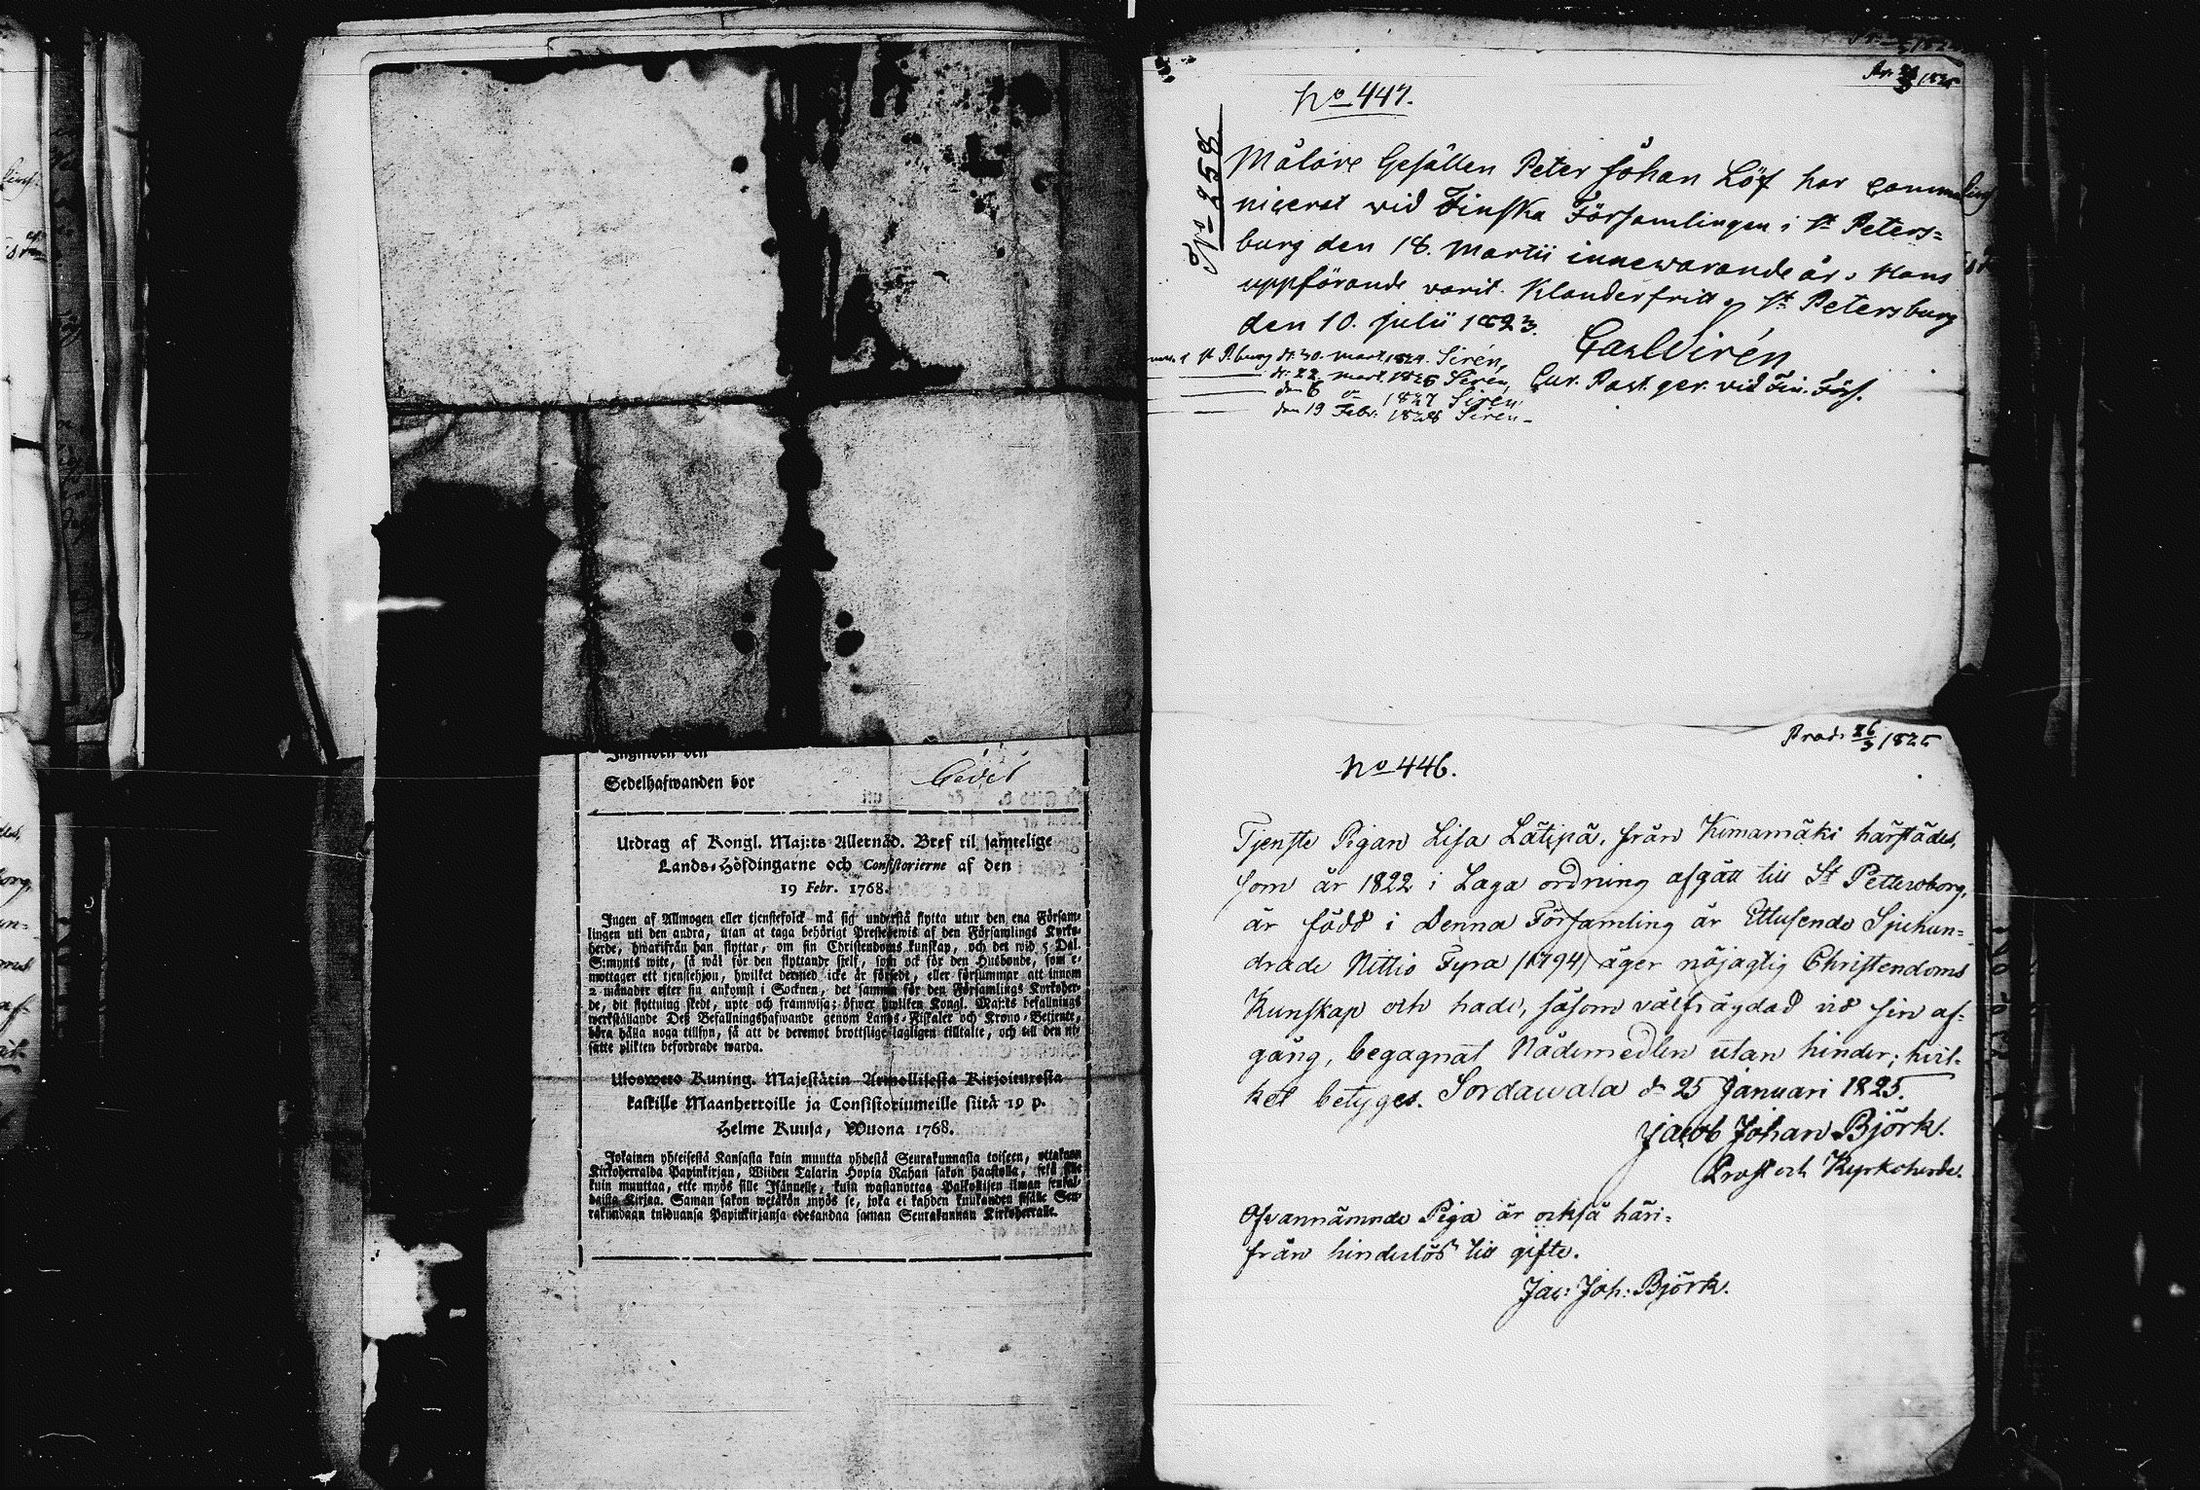 Sedelhafwanden bor
Utdrag af Kongl. Maj:ts Allernåd. Bref til samtelige
Lands-Höfdingarne och Consistorierne af den
19 Febr. 1768.
Ingen af Allmogen eller tjenstefolck må sig understå flytta utur den ena Försam-
lingen uti den andra, utan at taga behörigt Prestebewis af den Församlings Kyrko-
herde, hwarifrån han flyttar, om sin Christendoms kunskap, och det wid 5 Dal.
S:mynts wite, så wäl för den flyttande sjelf, som ock för den Husbonde, som e-
mottager ett tjensehjon, hwilket dermed icke är försedt, eller försummar att innom
2 månader efter sin ankomst i Socknen, det samma för den Församlings Kyrkoher-
de, dit flyttning skedt, upte och framwisa; öfwer hwilken Kongl. Maj:ts befallnings
werkställande Deß Befallningshafwande genom Lands-Fiskaler och Krono-Betjente,
böra hålla noga tillsyn, så att de deremot brottslige lagligen tilltalte, och till den ut-
satte plikten befordrade warda.
Uloswero Kuning. Majestätin Armollisesta Kirjoituxesta
kaikille Maanherroille ja Consistoriumeille siitä 19 p.
Helme Kuusa, Wuona 1768.
Jokainen yhteisestä Kansasta kuin muutta yhdestä Seurakunnasta toiseen, ottakaan
Kirkoherralda Papinkirjan, Wiiden Talarin Hopia Rahan sakon haastolla, sekä sille
kuin muuttaa, ette myös sille Isännelle, kuin wastanottaa Palkollisen ilman senkal-
daista Kirjaa. Saman sakon wetäkön myös se, joka ei kahden kuukauden sisälle Seu-
rakundaan tulduansa Papinkirjansa edesandaa saman Seurakunnan Kirkoherralle.
No 447.
No 258
Målare Gesällen Peter Johan Löf har commu-
nicerat wid Finska Församlingen i St Peters-
burg den 18. Martii innewarande år. Hans
uppförande varit klanderfritt. St Petersburg
den 10. Julii 1823.
Carl Sirén
Cur. Past. ger. vid Fin. Förs.
St Pburg d. 30. mart. 1824. Sirén,
d. 22. mart. 1826 Sirén,
den 6 1827 Sirén
den 19 Febr. 1828 Sirén
Prod. 26/3 1825
No 446.
Tjenste Pigan Lisa Lätipä, från Kimamäki härstädes,
som år 1822 i Laga ordning afgått till St Pettersborg,
är född i denna Församling år Ettusende Sjuhun-
drade Nittio Fyra (1794) äger nöjagtig Christendoms
Kunskap och hade, såsom välfrägdad vid sin af-
gång, begagnat Nådemedlen utan hinder; hvil-
ket betyges. Sordawala d 25 Januari 1825.
Jacob Johan Björk.
Prost och Kyrkoherde.
Ofvannämnde Piga är också häri-
från hinderlös till gifte.
Jac: Joh: Björk.